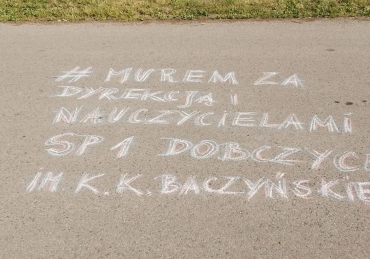 # MUREM ZA
DYREKCJĄ I
NAUCZYCIELAMI
SP 1 DOBCZYC
IM K.K. BACZYŃSKIE